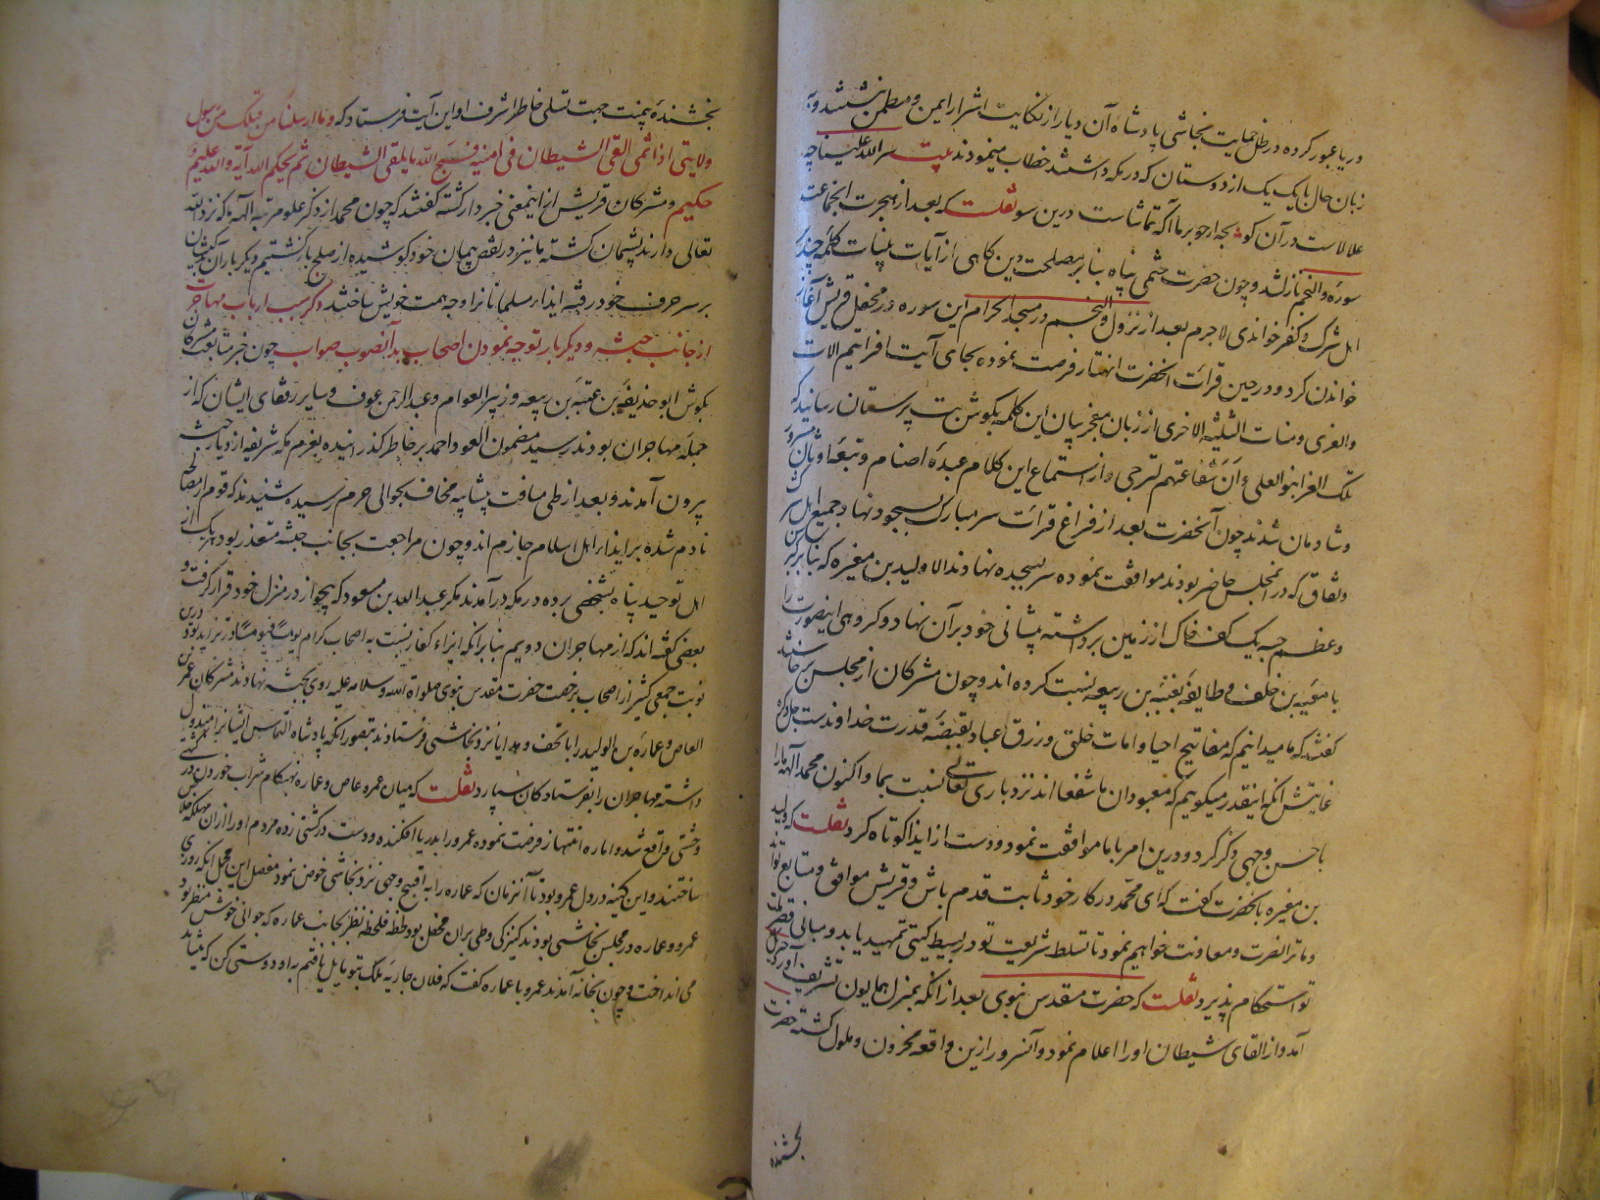 دریا عبور کرده در ظل حمایت نجاشی پادشاه آن دیار از نکایت اشرار ایمن و مطمئن نشستند و به
زبان حال با یک یک از دوستان که در مکه داشتند خطاب مینمودند بیت سر الله علینا چه
علالاست در آن کو بجه ارحو بر ما آ که تماشاست درین سو نقلست که بعد از هجرت آنجماعت
سورهٔ والنجم نازل شد و چون حضرت ختمی پناه بنا بر مصلحت دین کاهی از آیات بینات کلمهٔ چند بر
اهل شرک و کفر خواندی لاجرم بعد از نزول والنجم در مسجد الحرام این سوره در محفل قریش آغاز
خواندن کرد و در حین قرائت آنحضرت انتهاز فرصت نموده بجای آیت افرایتم اللات
والعزی و منات الثلثة الاخری از زبان معجز بیان این کلمه بکوش بت پرستان رسانید که
تلک الغرانیق العلی و ان شفاعتهم لترجی و از استماع این کلام عبدهٔ اصنام و تبعهٔ اوثان مسرور
و شادمان شدند چون آنحضرت بعد از فراغ قرائت سر مبارک بسجود نهاد جمیع اهل شرک
و نفاق که در آنمجلس حاضر بودند موافقت نموده سر بسجده نهادند الا ولید بن مغیره که بنا بر کبر سن
و عظم جثه یک کف خاک از زمین برداشته پیشانی خود بر آن نهاد و کروهی اینصورت را
بامیة بن خلف و طایفهٔ بعتبه بن ربیعه نسبت کرده اند و چون مشرکان از مجلس برخاستند
کفتند که ما میدانیم که مفاتیح احیا و امات خلق و رزق عباد بقبضهٔ قدرت خداوندست جل ذکره
غایتش آنکه اینقدر میکوییم که معبودان ما شفعا اند نزد باری تعالی نسبت بما و اکنون محمد آلههٔ ما را
باحسن وجهی ذکر کرد و درین امر با ما موافقت نمود و دست از ایذا کوتاه کرد نقلست که ولید
بن مغیره با آنحضرت کفت که ای محمد در کار خود ثابت قدم باش و قریش موافق و متابع تواند
و ما ترا نصرت و معاونت خواهیم نمود تا تسلط شریعت تو در بسیط کیتی تمهید یابد و مبانی قصر
تو استحکام پذیرد نقلست که حضرت مقدس نبوی بعد از آنکه بمنزل همایون تشریف آورد جبرئیل
آمد و از القای شیطان او را اعلام نمود و آنسرور ازین واقعه محزون و ملول کشته حضرت
بخشنده
بخشندهٔ بیمنت جهت تسلی خاطر اشرف او این آیت فرستاد که و ما ارسلنا من قبلک من رسول
ولا نبی اذا تمنی القی الشیطان فی امنیته فینسخ الله ما یلقی الشیطان ثم یحکم الله آیاته والله علیم
حکیم و مشرکان قریش از اینمعنی خبردار کشته کفتند که چون محمد از ذکر علو مرتبهٔ آلهه که نزد الله
تعالی دارند پشیمان کشته ما نیز در نقض پیمان خود کوشیده از صلح باز کشتیم دیکر بار آن
بر سر حرف خود رفته ایذاء مسلمانان را وجه همت خویش ساختند ذکر سبب ارباب مهاجرت
از جانب حبشه و دیکر بار توجه نمودن اصحاب بدآنصوب صواب چون خبر متابعت مشرکان
بکوش ابو حذیفه بن عتبه بن ربیعه و زبیر العوام و عبد الرحمن عوف و سایر رفقای ایشان که از
جمله مهاجران بودند رسید مضمون العود احمد بر خاطر کذرانیده بعزم مکه شریفه از دیار حبشه
بیرون آمدند و بعد از طی مسافت بیشابیه مخاف بحوالی حرم رسیده شنیدند که قوم از مصالحه
نادم شده بر ایذاء اهل اسلام جازم اند و چون مراجعت بجانب حبشه متعذر بود هر یک از
اهل توحید پناه بشخصی برده در مکه درآمدند مکر عبد الله بن مسعود که بیجوار در منزل خود قرار کرفت و
بعضی کفته اند که از مهاجران دویم بنا بر آنکه ایذاء کفار نسبت به اصحاب کرام یوما فیوما تزاید بود درین
نوبت جمعی کثیر از اصحاب برخصت حضرت مقدس نبوی صلواة الله وسلامه علیه روی بحبشه نهادند مشرکان عمرو بن
العاص و عماره بن الولید را با تحف و هدایا نزد نجاشی فرستادند بتصور آنکه پادشاه التماس ایشانرا مبذول
داشته مهاجران را بفرستادکان سپارد نقلست که میان عمرو عاص و عماره بهنکام شراب خوردن در کشتی
وحشتی واقع شد و اماره انتهاز فرصت نموده عمرو را بدریا افکنده و دست در کشتی زده مردم او را از آن مهلکه خلاص
ساختند و این کینه در دل عمرو بود تا آنزمان که عماره را به اقبح وجهی نزد نجاشی خوض نمود مفصل این مجمل آنکه روزی
عمرو و عماره در مجلس نجاشی بودند کنیزکی وطی بر ان محفل بود لحظه فلحظه نظر بجانب عماره که جوانی خوش منظر بود
می انداخت و چون بخانه آمدند عمرو با عماره کفت که فلان جاریهٔ ملک بتو مایل یافتم به او دوستی کن که شاید